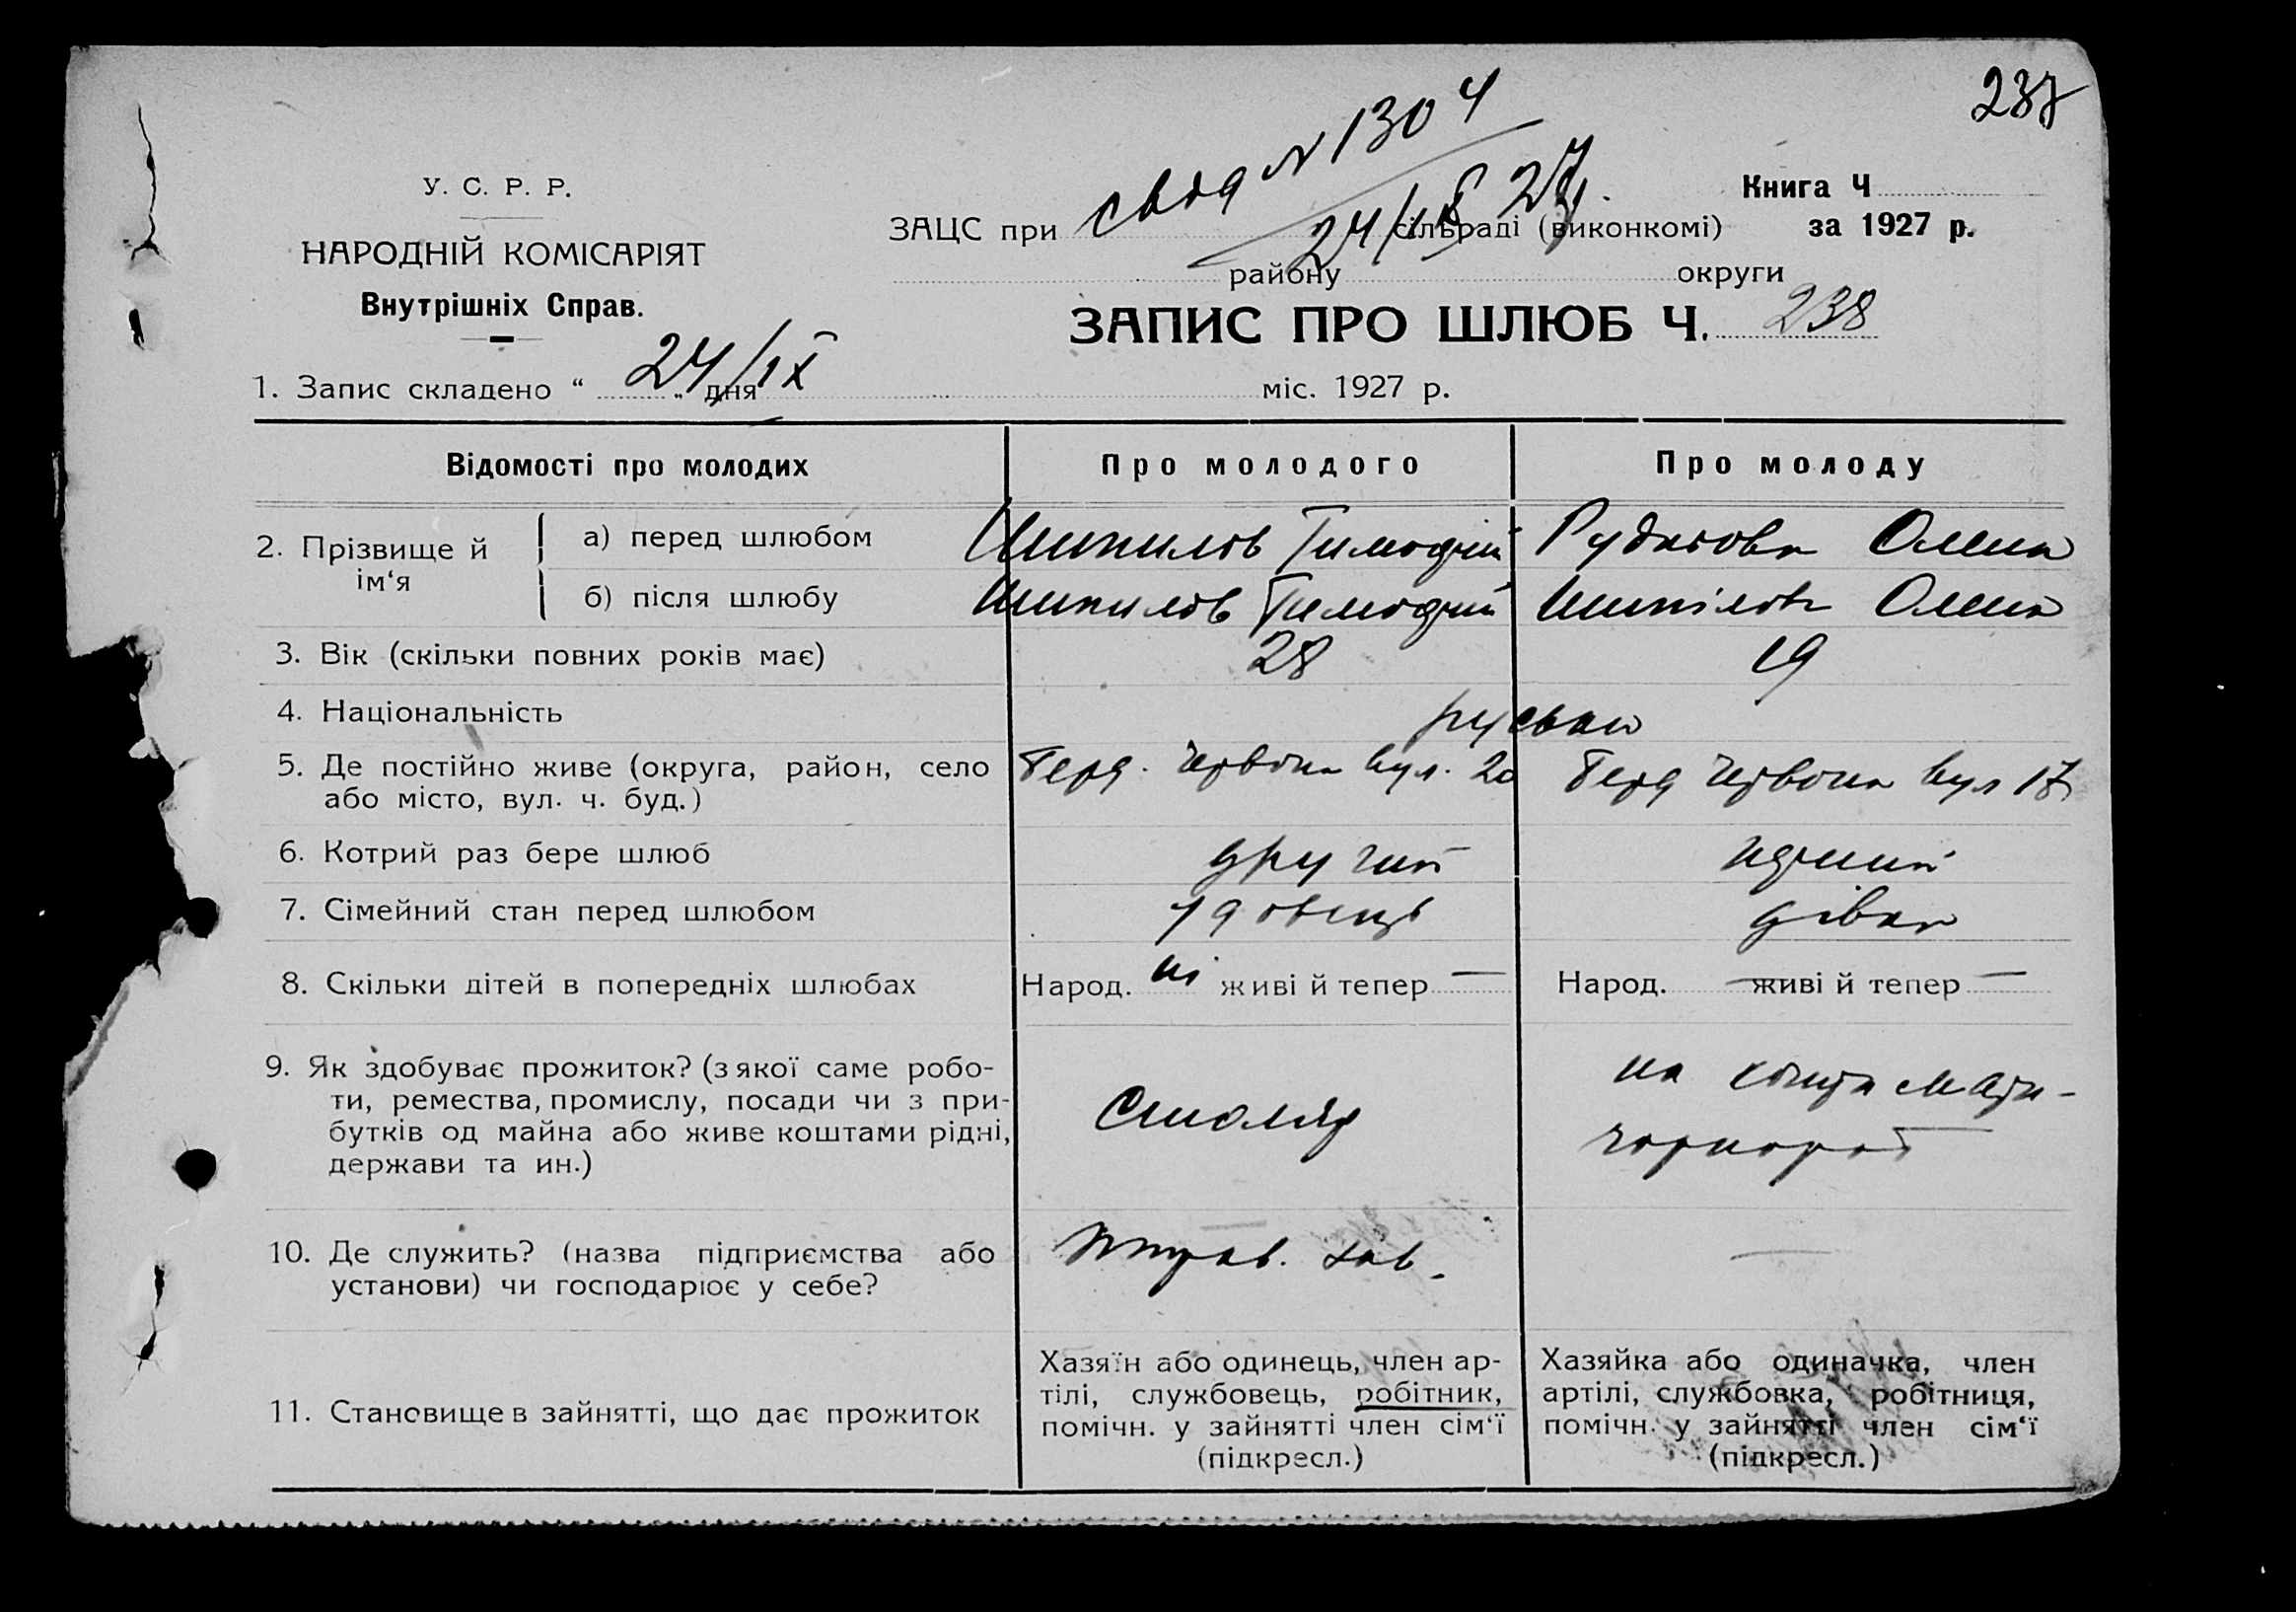 237
свод N 1304
24/IX 27
У. С. Р. Р.
НАРОДНІЙ КОМІСАРІЯТ
Внутрішніх Справ.
Книга Ч
за 1927 р.
ЗАЦС при сільраді (виконкомі)
району округи
ЗАПИС ПРО ШЛЮБ Ч. 238
1. Запис складено “ 24/IX „ дня міс. 1927 р.
Відомості про молодих Про молодого Про молоду
2. Прізвище й ім‘я
а) перед шлюбом Шипилов Тимофій Рудакова Олена
б) після шлюбу Шипилов Тимофій Шипілова Олена
3. Вік (скільки повних років має) 28 19
4. Національність руськи
5. Де постійно живе (округа, район, село
або місто, вул. ч. буд.)
Берд. Червона вул. 20
Берд Червона вул 17
6. Котрий раз бере шлюб другий перший
7. Сімейний стан перед шлюбом удовець дівка
8. Скільки дітей в попередніх шлюбах Народ. ні живі й тепер — Народ. — живі й тепер —
9. Як здобуває прожиток? (з якої саме робо-
ти, ремества, промислу, посади чи з при-
бутків од майна або живе коштами рідні,
держави та ин.)
Столяр
на кошти мати-
чорнороб
10. Де служить? (назва підприємства або
установи) чи господарює у себе?
зав. —
11. Становище в зайнятті, що дає прожиток
Хазяїн або одинець, член ар-
тілі, службовець, робітник,
помічн. у зайнятті член сім‘ї
(підкресл.)
Хазяйка або одиначка, член
артілі, службовка, робітниця,
помічн. у зайнятті член сім‘ї
(підкресл.)